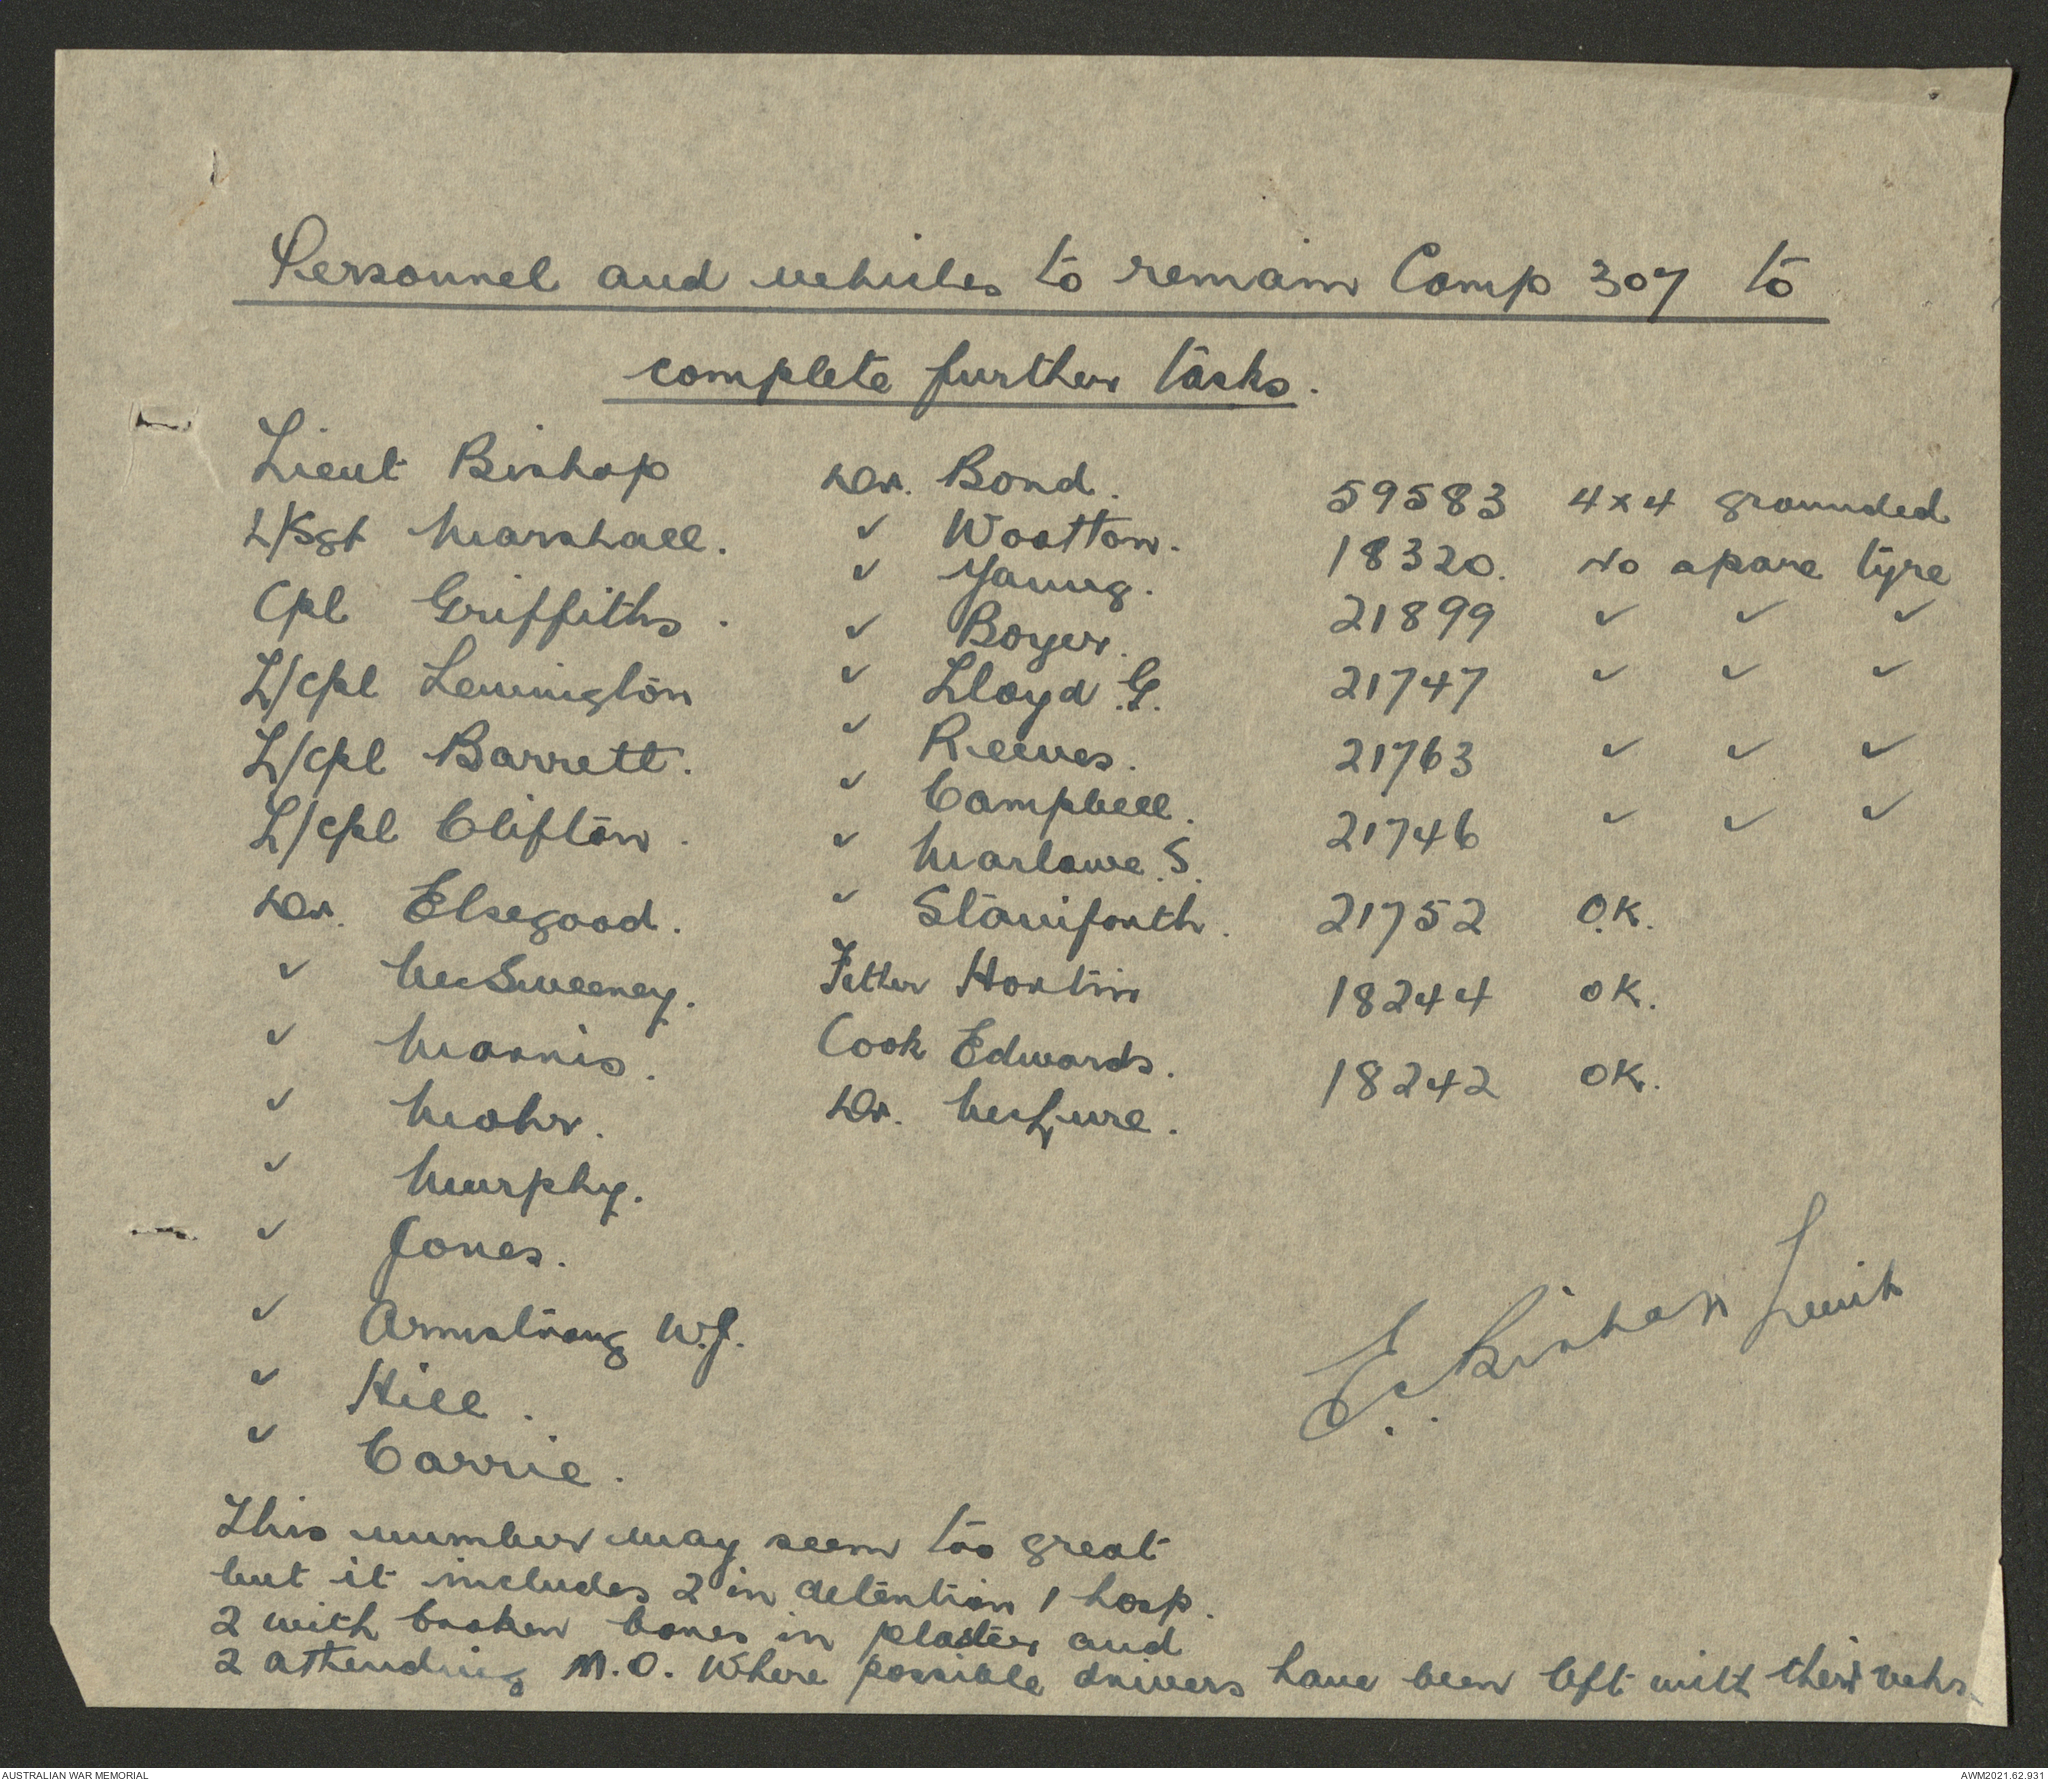 Personnel and vehicles to remain Camp 307 to
complete further tasks.
Lieut Bishop Dvr. Bond. 59583 4x4 grounded
L/Sgt Marshall. " Wootton. 18320. No spare tyre
Cpl Griffiths. " Young. 21899 " " "
L/cpl Lenington " Boyer. 21747 " " "
L/cpl Barrett. " Lloyd G. 21763 " " "
L/cpl Clifton. " Reeves. 21746 " " "
Dvr. Elsegood. " Campbell. 21752 O.K.
" McSweeney. " Marlowe. S. 18244 OK.
" Morris. " Staniforth. 18242 OK.
" Mohr. Fitter Horlin
" Murphy. Cook Edwards.
" Jones. Dvr. McLure.
" Armstrong W.J.
" Hill.
" Carrie.
E. Bishop Lieut
This number may seem too great
but it includes 2 in detention 1 hosp.
2 with broken bones in plaster and
2 attending M.O. Where possible drivers have been left with their vehs
AUSTRALIAN WAR MEMORIAL AWM2021.62.931